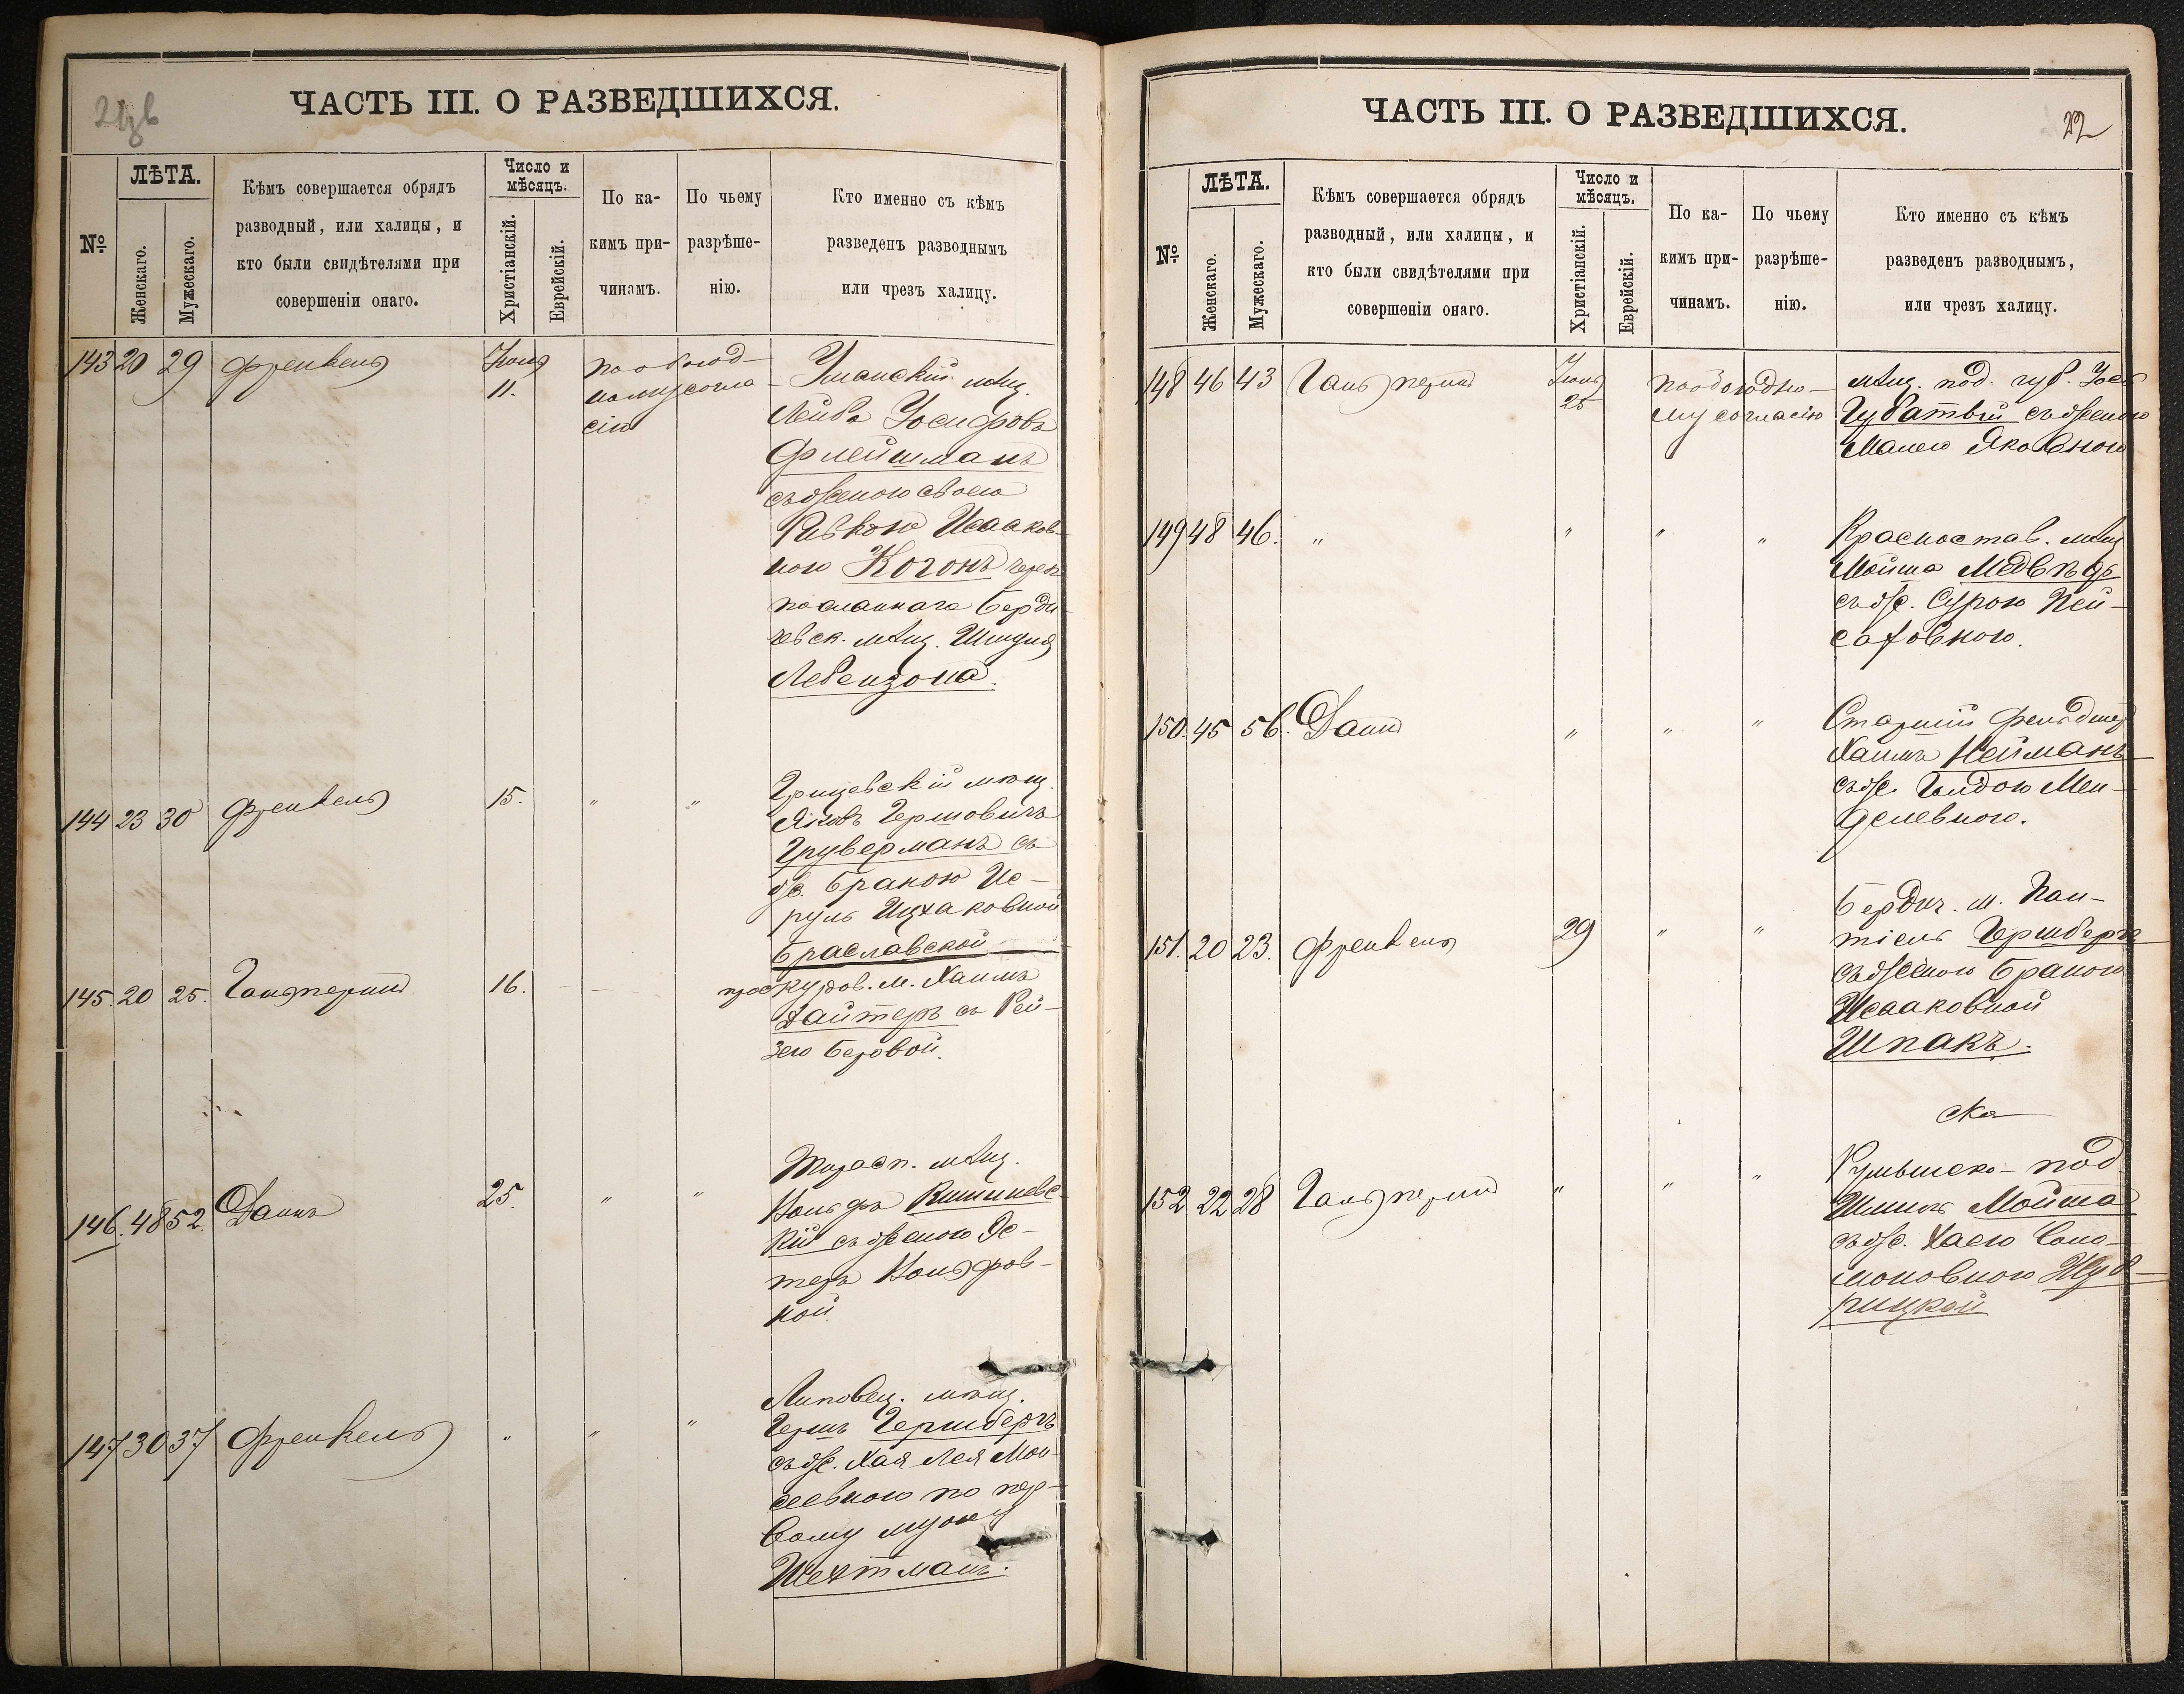 21зв
ЧАСТЬ III. О РАЗВЕДШИХСЯ.
№
ЛѢТА.
Женскаго.
Мужескаго.
Кѣмъ совершается обрядъ
разводный, или халицы, и
кто были свидѣтелями при
совершеніи онаго.
Число и
мѣсяцъ.
Христіанскій.
Еврейскій.
По ка-
кимъ при-
чинамъ.
По чьему
разрѣше-
нію.
Кто именно съ кѣмъ
разведенъ разводнымъ
или чрезъ халицу.
143 20 29 Френкель
11.
по обоюд-
ному согла-
сію
Уманскій мѣщ.
Лейба Іосифовъ
Флейшманъ
съ женою своею
Ривкою Исааков-
ною Когонъ чрезъ
посланнаго Берди-
чевск. мѣщ. Шмуля
Левензона.
144 23 30 Френкель 15. " "
Грицевскій мѣщ.
Яковъ Гершовичъ
Груверманъ съ
ж. Браною Ис-
руль Ицхаковной
Браславской
145. 20 25. Гальперинъ 16.
проскуров. м. Хаимъ
Дайтеръ съ Рей-
зею Беровой.
146. 48 52. Даинъ 25. " "
Тирасп. мѣщ.
Вольфъ Кишиневс-
кій съ женою Эс-
теръ Вольфов-
ной.
147 30 37 Френкель " " "
Липовец. мѣщ.
Гершъ Гершбергъ
съ ж. Хая Лея Мои-
сеевною по пер-
вому мужу
Шехтманъ.
ЧАСТЬ III. О РАЗВЕДШИХСЯ.
22
№
ЛѢТА.
Женскаго.
Мужескаго.
Кѣмъ совершается обрядъ
разводный, или халицы, и
кто были свидѣтелями при
совершеніи онаго.
Число и
мѣсяцъ.
Христіанскій.
Еврейскій.
По ка-
кимъ при-
чинамъ.
По чьему
разрѣше-
нію.
Кто именно съ кѣмъ
разведенъ разводнымъ,
или чрезъ халицу.
148 46 43 Гальперинъ
25
по обоюдно-
му согласію
мѣщ. под. губ. Іось
Губатый съ женою
Малею Яковною
149 48 46. " " " "
Красностав. мѣщ
Мойша Медвѣдь
съ ж. Сурою Пей-
саховною.
150. 45 56. Даинъ " " "
Старшій фельдшер
Хаимъ Нейманъ
съ ж. Гилдою Мен-
делевною.
151. 20 23. Френкель 29 " "
Бердич. м. Пан-
тіель Гершбергъ
съ женою Браною
Исааковной
Шпакъ.
152 22 28 Гальперинъ " " "
ска
Румынско-под
Шмиль Мойша
съ ж. Хаею Соло-
моновною
рицкой